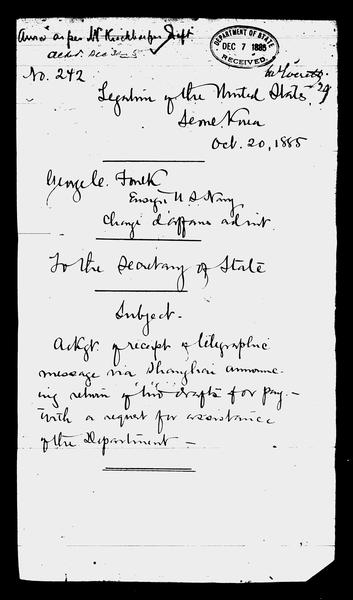 Ansd as per Mr Kirchhofer's Dept
DEPARTMENT OF STATE
DEC 7 1885
RECEIVED.
No. 242
Legation of the United States,
Seoul, Korea
Oct. 20, 1885
George C. Foulk
Ensign U S Navy
Chargé d'affaires ad int.
To the Secretary of State
Subject.
Ackgt of receipt of telegraphic
message via Shanghai announc-
ing return of two drafts for pay -
with a request for assistance
of the Department -